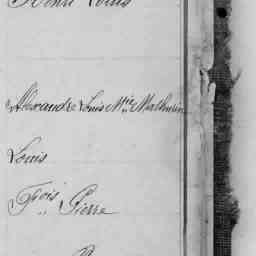 Henri Louis
Alexandre Louis Mie Mathurin
Louis
Fçois Pierre